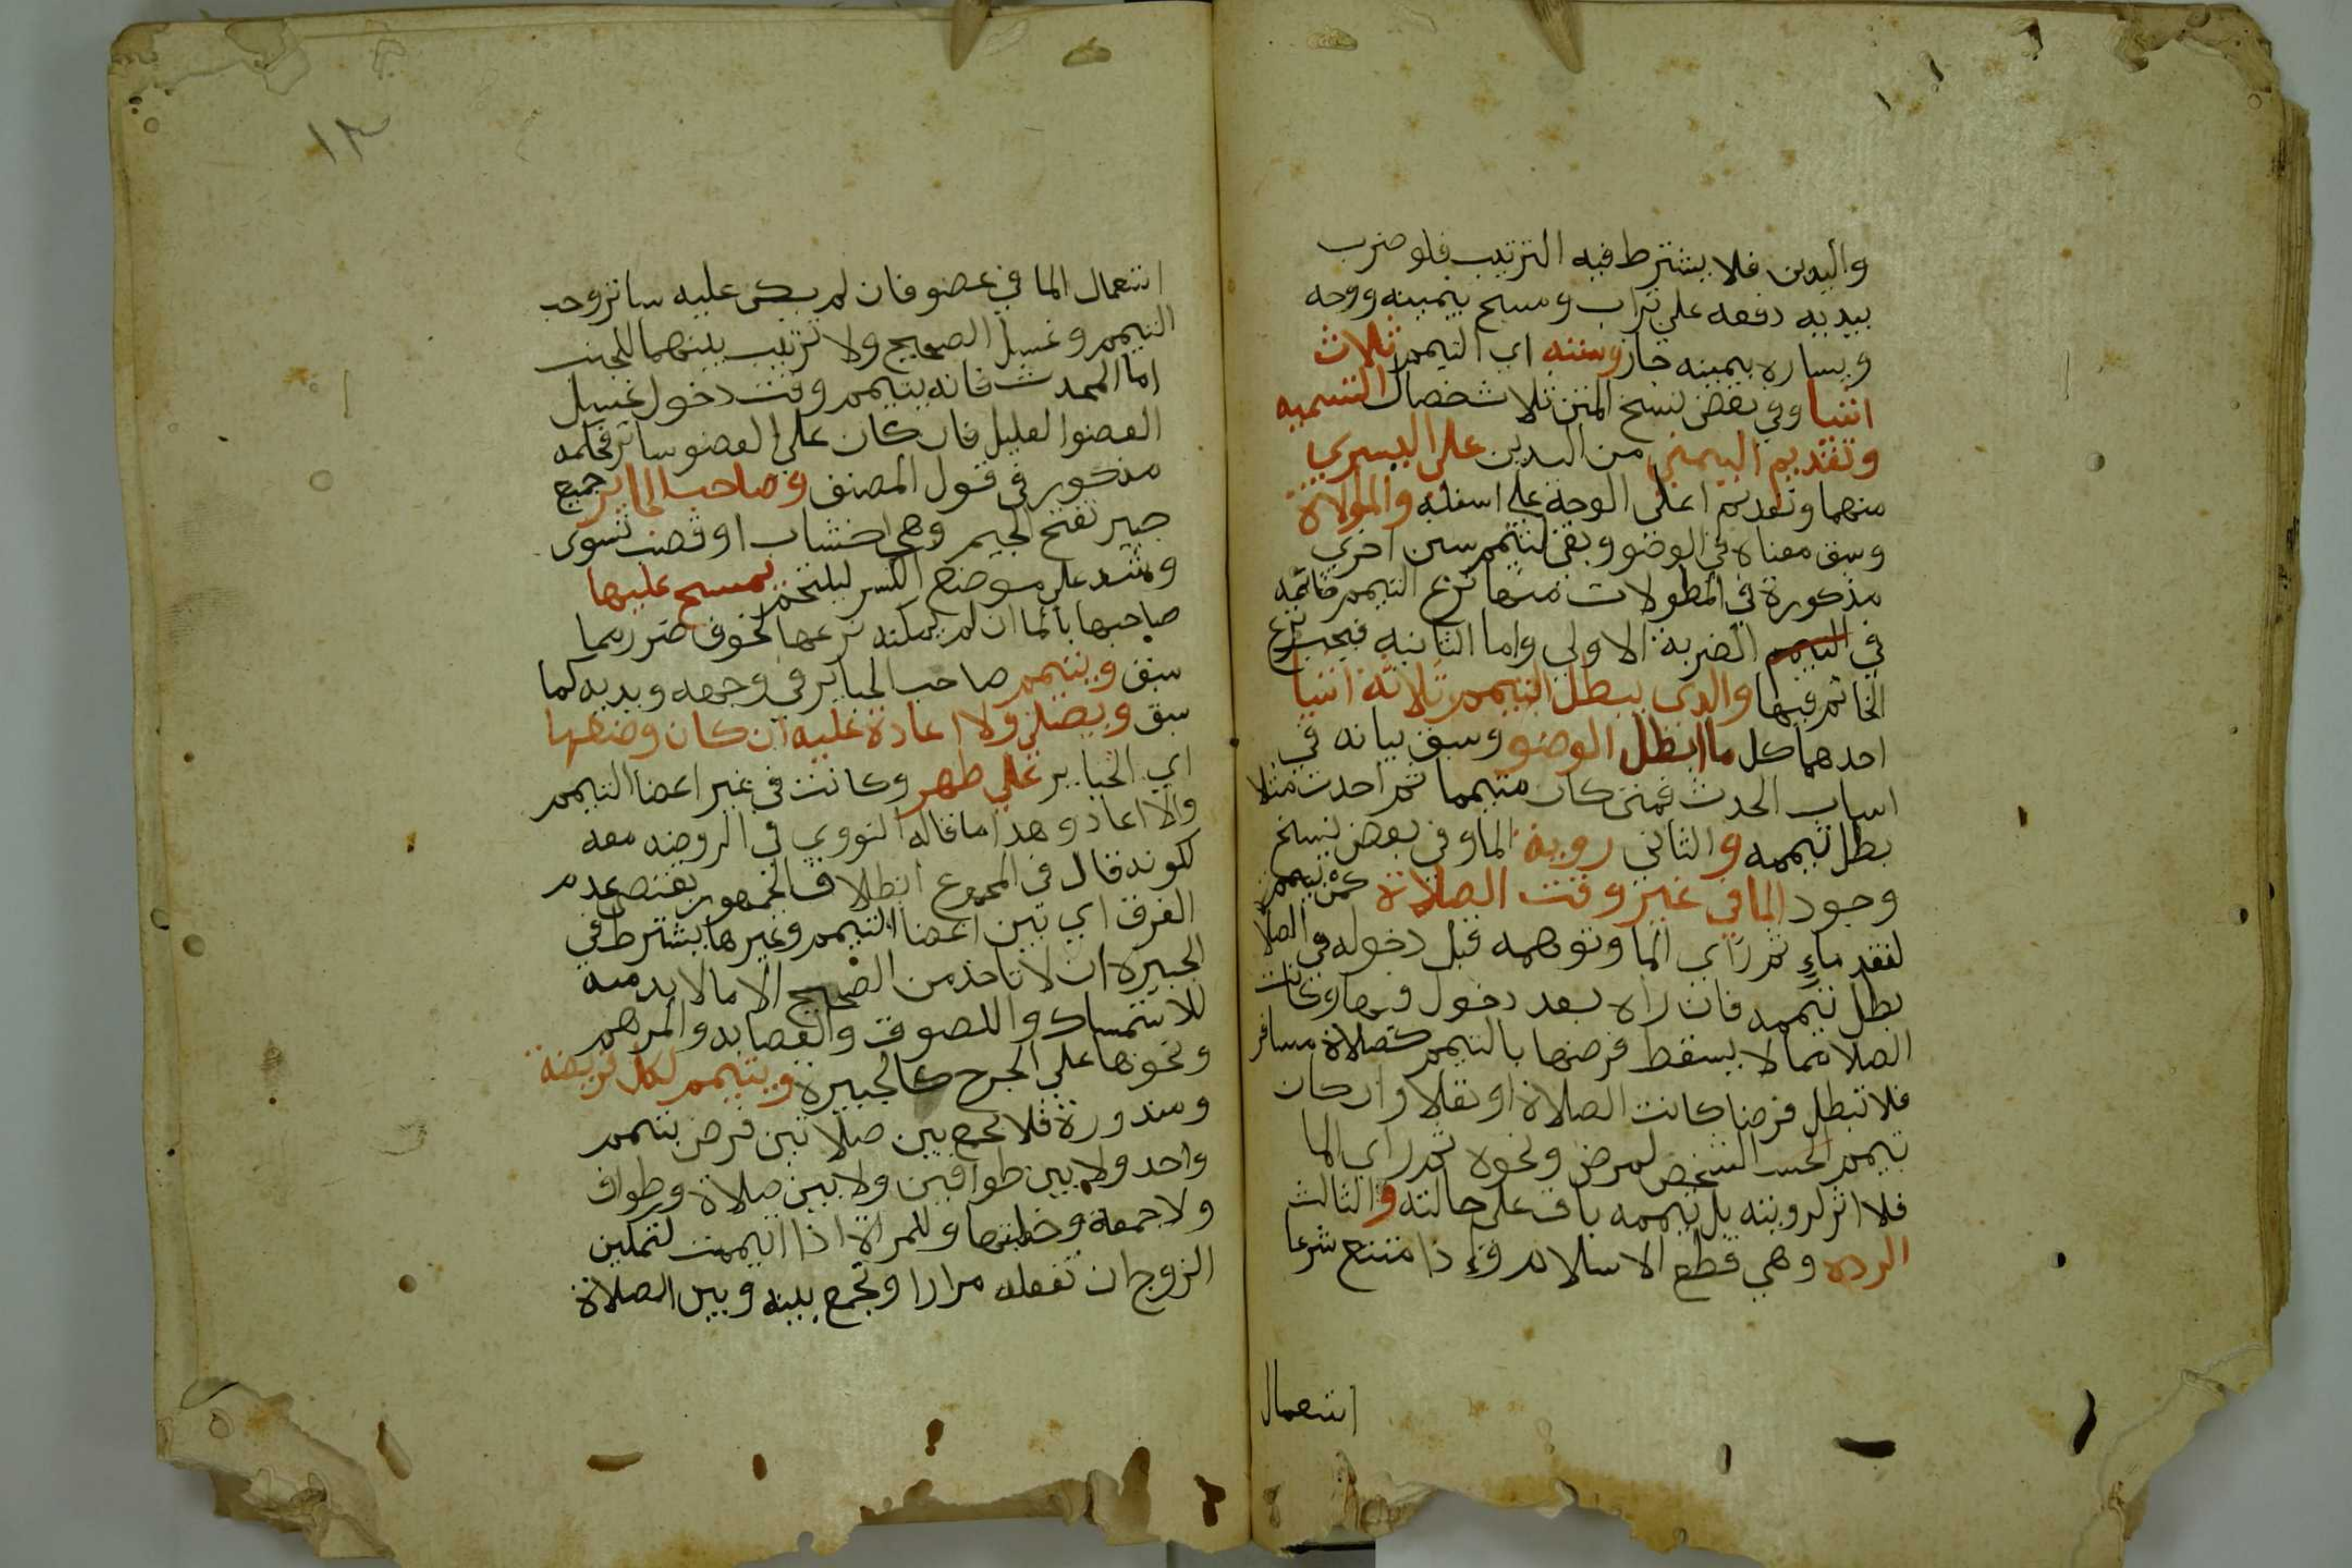 واليدين فلا يشترط فيه الترتيب فلو ضرب
بيديه دفعه علي تراب ومسح بيمينه ووجه
ويساره بيمينه جاز وسننه اي التيمم ثلاث
اشيا وفي بعض نسخ المتن ثلاث خصال التسميه
وتقديم اليمني من اليدين علي اليسري
منهما وتقديم اعلي الوجه علي اسفله والموالاة
وسبق معناه في الوضو وبقي للتيمم سنن اخري
مذكورة في المطولات منها نزع التيمم خاتمه
في التيمم الضربة الاولي واما الثانيه فيجب نزع
الخاتم فيها والذي يبطل التيمم ثلاثة اشيا
احدهما كل ما ابطل الوضو وسبق بيانه في
اسباب الحدث فمتي كان متيمما ثم احدث مثلا
بطل تيممه والثاني روية الما وفي بعض نسخ
وجود الما في غير وقت الصلاة كمن تيمم
لفقد ماء ثم راي الما وتوهمه قبل دخوله في الصلا
بطل تيممه فان راه بعد دخول فيها وكانت
الصلا مما لا يسقط فرضها بالتيمم كصلاة مسافر
فلا تبطل فرضا كانت الصلاة او نفلا وان كان
تيمم الشخص لمرض ونحوه ثم راي الما
فلا اثر لرويته بل تيممه باق علي حالته والثالث
الرده وهي قطع الاسلام واذا متنع شرعا
استعمال
١٣
استعمال الما في عضو فان لم يكن عليه ساتر وجب
التيمم وغسل الصحيح ولا ترتيب بينهما للجنب
اما المحدث فانه يتيمم وقت دخول غسل
العضو العليل فان كان علي العضو ساتر فحكمه
مذكور في قول المصنف وصاحب الجباير جمع
جبير بفتح الجيم وهي اخشاب او قصب تسوي
وتشد علي موضع الكسر ليلتحم يمسح عليها
صاحبها بالما ان لم يمكنه نزعها لخوف ضرر مما
سبق ويتيمم صاحب الجباير في وجهه ويديه كما
سبق ويصلي ولا اعادة عليه ان كان وضعها
اي الجباير علي طهر وكانت في غير اعضا التيمم
والا اعاد وهذا ما قاله النووي في الروضه
لكونه قال في المجموع ان اطلاق الجمهور يقتضي عدم
الفرق اي بين اعضا التيمم وغيرها يشترط في
الجبيرة ان لا تاخذ من الصحيح الا ما لا بد منه
للاستمساك واللصوق والعصابه والمرهم
ونحوها علي الجرح كالجبيرة ويتيمم لكل فريضة
ومنذورة فلا يجمع بين صلاتين فرض بتيمم
واحد ولا بين طوافين ولا بين صلاة وطواف
ولا جمعة وخطبتها وللمراة اذا تيممت لتمكين
الزوج ان تفعله مرارا وتجمع بينه وبين الصلاة